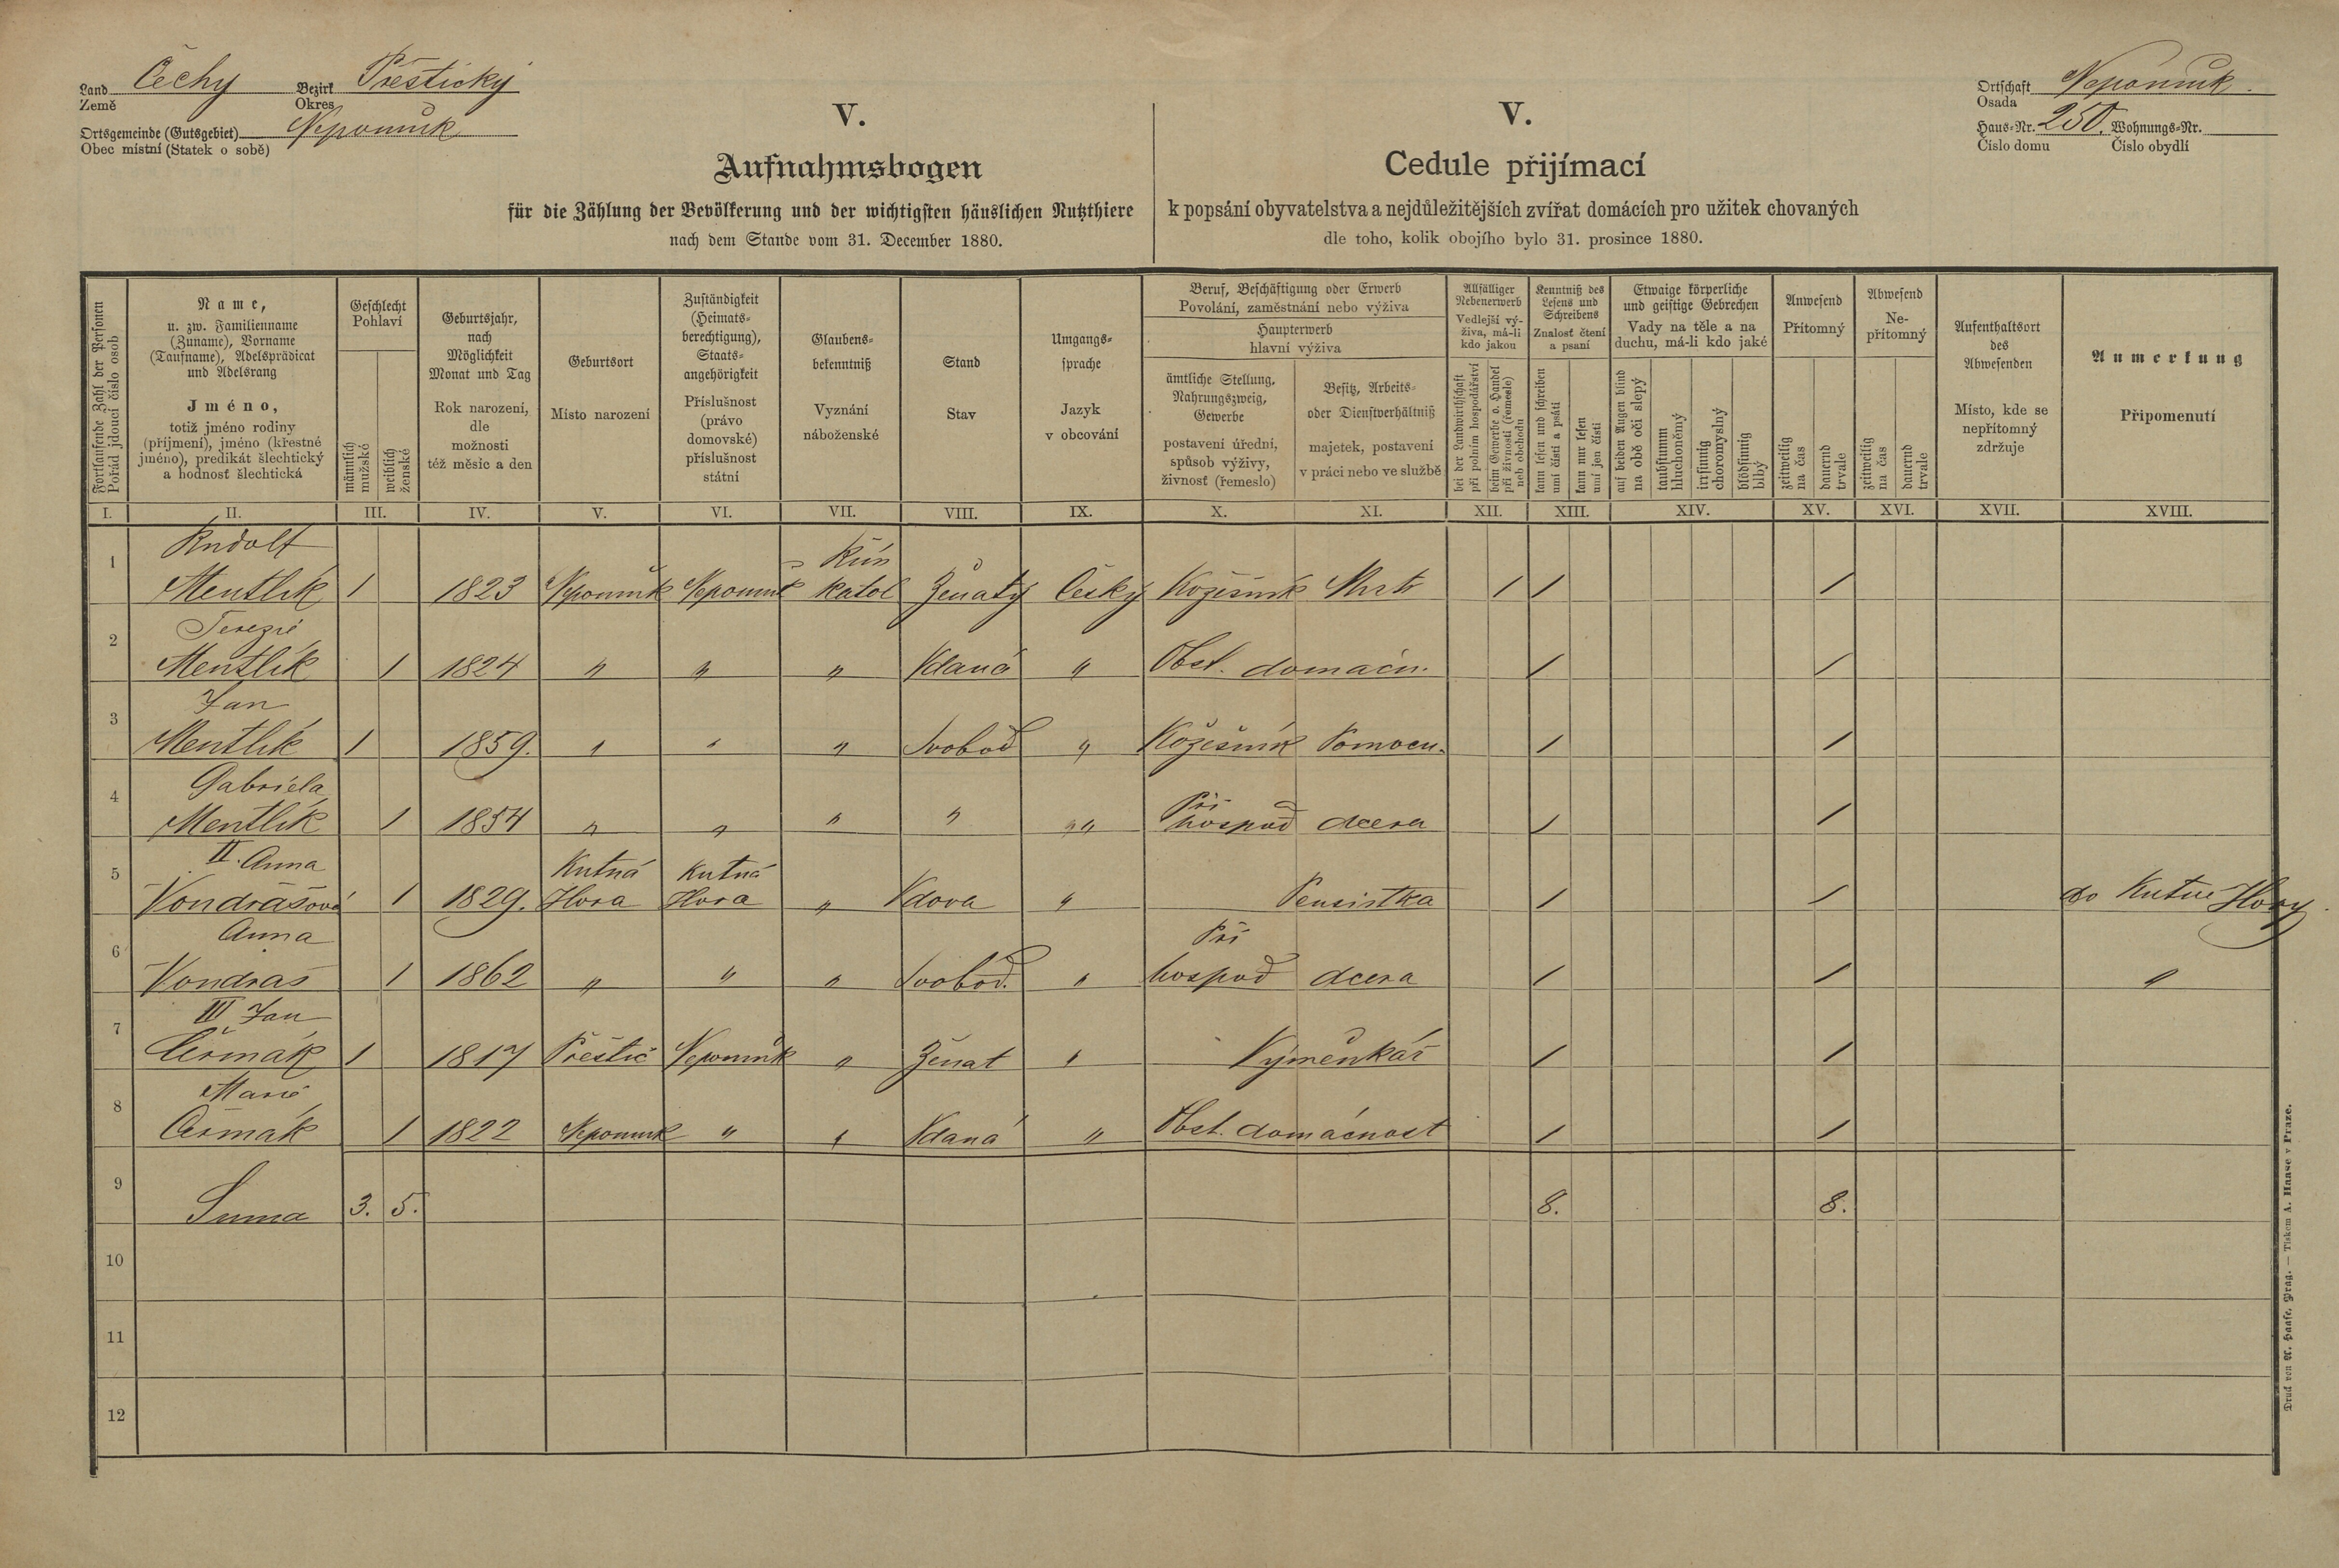 Land Čechy Bezirk Přeštický
Země Okres
Ortsgemeinde (Gutsgebiet) Nepomuk
Obec místní (Statek o sobě)
Ortschaft Nepomuk.
Osada
Haus-Nr. 250. Wohnungs-Nr.
Číslo domu Číslo obydlí
V.
Aufnahmsbogen
für die Zählung der Bevölkerung und der wichtigsten häuslichen Nutzthiere
nach dem Stande vom 31. December 1880.
V.
Cedule přijímací
k popsání obyvatelstva a nejdůležitějších zvířat domácích pro užitek chovaných
dle toho, kolik obojího bylo 31. prosince 1880.
Fortlaufende Zahl der Personen
Pořád jdoucí číslo osob
Name,
u. zw. Familienname
(Zuname), Vorname
(Taufname), Adelsprädicat
und Adelsrang
Jméno,
totiž jméno rodiny
(příjmení), jméno (křestné
jméno), predikát šlechtický
a hodnosť šlechtická
Geschlecht
Pohlaví
männlich
mužské
weiblich
ženské
Geburtsjahr,
nach
Möglichkeit
Monat und Tag
Rok narození,
dle
možnosti
též měsíc a den
Geburtsort
Místo narození
Zuständigkeit
(Heimats-
berechtigung),
Staats-
angehörigkeit
Příslušnost
(právo
domovské)
příslušnost
státní
Glaubens-
bekenntniß
Vyznání
náboženské
Stand
Stav
Umgangs-
sprache
Jazyk
v obcování
Beruf, Beschäftigung oder Erwerb
Povolání, zaměstnání nebo výživa
Haupterwerb
hlavní výživa
ämtliche Stellung,
Nahrungszweig,
Gewerbe
postavení úřední,
spůsob výživy,
živnosť (řemeslo)
Besitz, Arbeits-
oder Dienstverhältniß
majetek, postavení
v práci nebo ve službě
Allfälliger
Nebenerwerb
Vedlejší vý-
živa, má-li
kdo jakou
bei der Landwirthschaft
při polním hospodářství
beim Gewerbe o. Handel
při živnosti (řemeslo)
neb obchodu
Kenntniß des
Lesens und
Schreibens
Znalosť čtení
a psaní
kann lesen und schreiben
umí čísti a psáti
kann nur lesen
umí jen čísti
Etwaige körperliche
und geistige Gebrechen
Vady na těle a na
duchu, má-li kdo jaké
auf beiden Augen blind
na obě oči slepý
taubstumm
hluchoněmý
irrsinnig
choromyslný
blödsinnig
blbý
Anwesend
Přítomný
zeitweilig
na čas
dauernd
trvale
Abwesend
Ne-
přítomný
zeitweilig
na čas
dauernd
trvale
Aufenthaltsort
des
Abwesenden
Místo, kde se
nepřítomný
zdržuje
Anmerkung
Připomenutí
I. II. III. IV. V. VI. VII. VIII. IX. X. XI. XII. XIII. XIV. XV. XVI. XVII. XVIII.
Rudolf Řím
1 Mentlík 1 1823 Nepomuk Nepomuk katol Ženatý Český Kožešník Mistr 1 1 1
Terezie
2 Mentlík 1 1824 " " " Vdaná " Obst. domácn. 1 1
Jan
3 Mentlík 1 1859. " " " Svobod " Kožešník Pomocn. 1 1
Gabriela Při
4 Mentlík 1 1854 " " " " " hospod dcera 1 1
II. Anna Kutná Kutná
5 Vondrášová 1 1829. Hora Hora " Vdova " Pensistka 1 1 do Kutné Hory
Anna Při
6 Vondraš 1 1862 " " " Svobod. " hospod dcera 1 1 "
III Jan
7 Čermák 1 1817 Přeštic Nepomuk " Ženat " Výměnkář 1 1
Marie
8 Čermák 1 1822 Nepomuk " " Vdaná " Obst. domácnost 1 1
9 Suma 3. 5. 8. 8.
10
11
12
Druck von A. Haase, Prag. — Tiskem A. Haase v Praze.